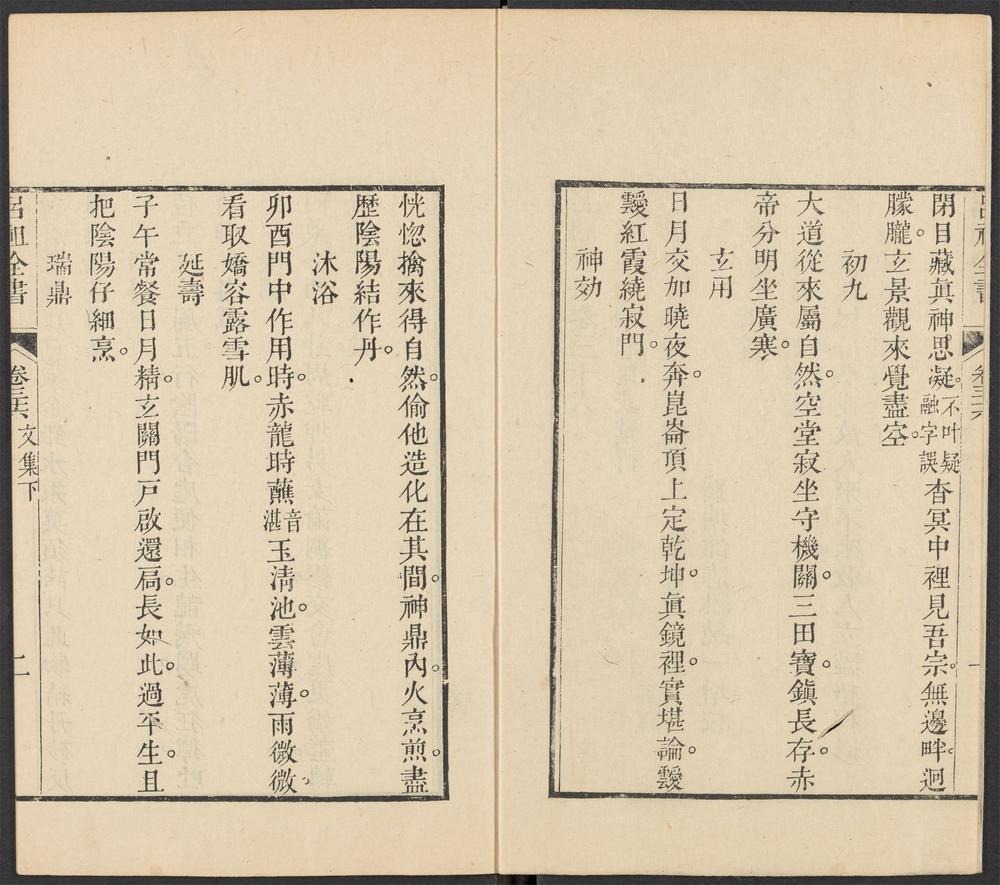 呂祖全書 卷三六 一
閉目藏眞神思凝。不叶疑融字誤杳冥中裡見吾宗。無邊畔。迥
朦。朧玄景觀來覺盡空。
初九
大道從來屬自然。空堂寂坐守機關。三田寶鎭長存。赤
帝分明坐廣寒。
玄用
日月交加曉夜奔。崑崙頂上定乾坤。眞鏡裡。實堪論。靉
靉紅霞繞寂門。
神効
恍惚擒來得自然。偷他造化在其間。神鼎內。火烹煎。盡
歷陰陽結作丹。
沐浴
卯酉門中作用時。赤龍時蘸音湛玉清池。雲薄薄。雨微微。
看取嬌容露雪肌。
延壽
子午常餐日月精。玄關門戸啟還扃。長如此。過平生。且
把陰陽仔細烹。
瑞鼎
呂祖全書 卷三六 文集下 二